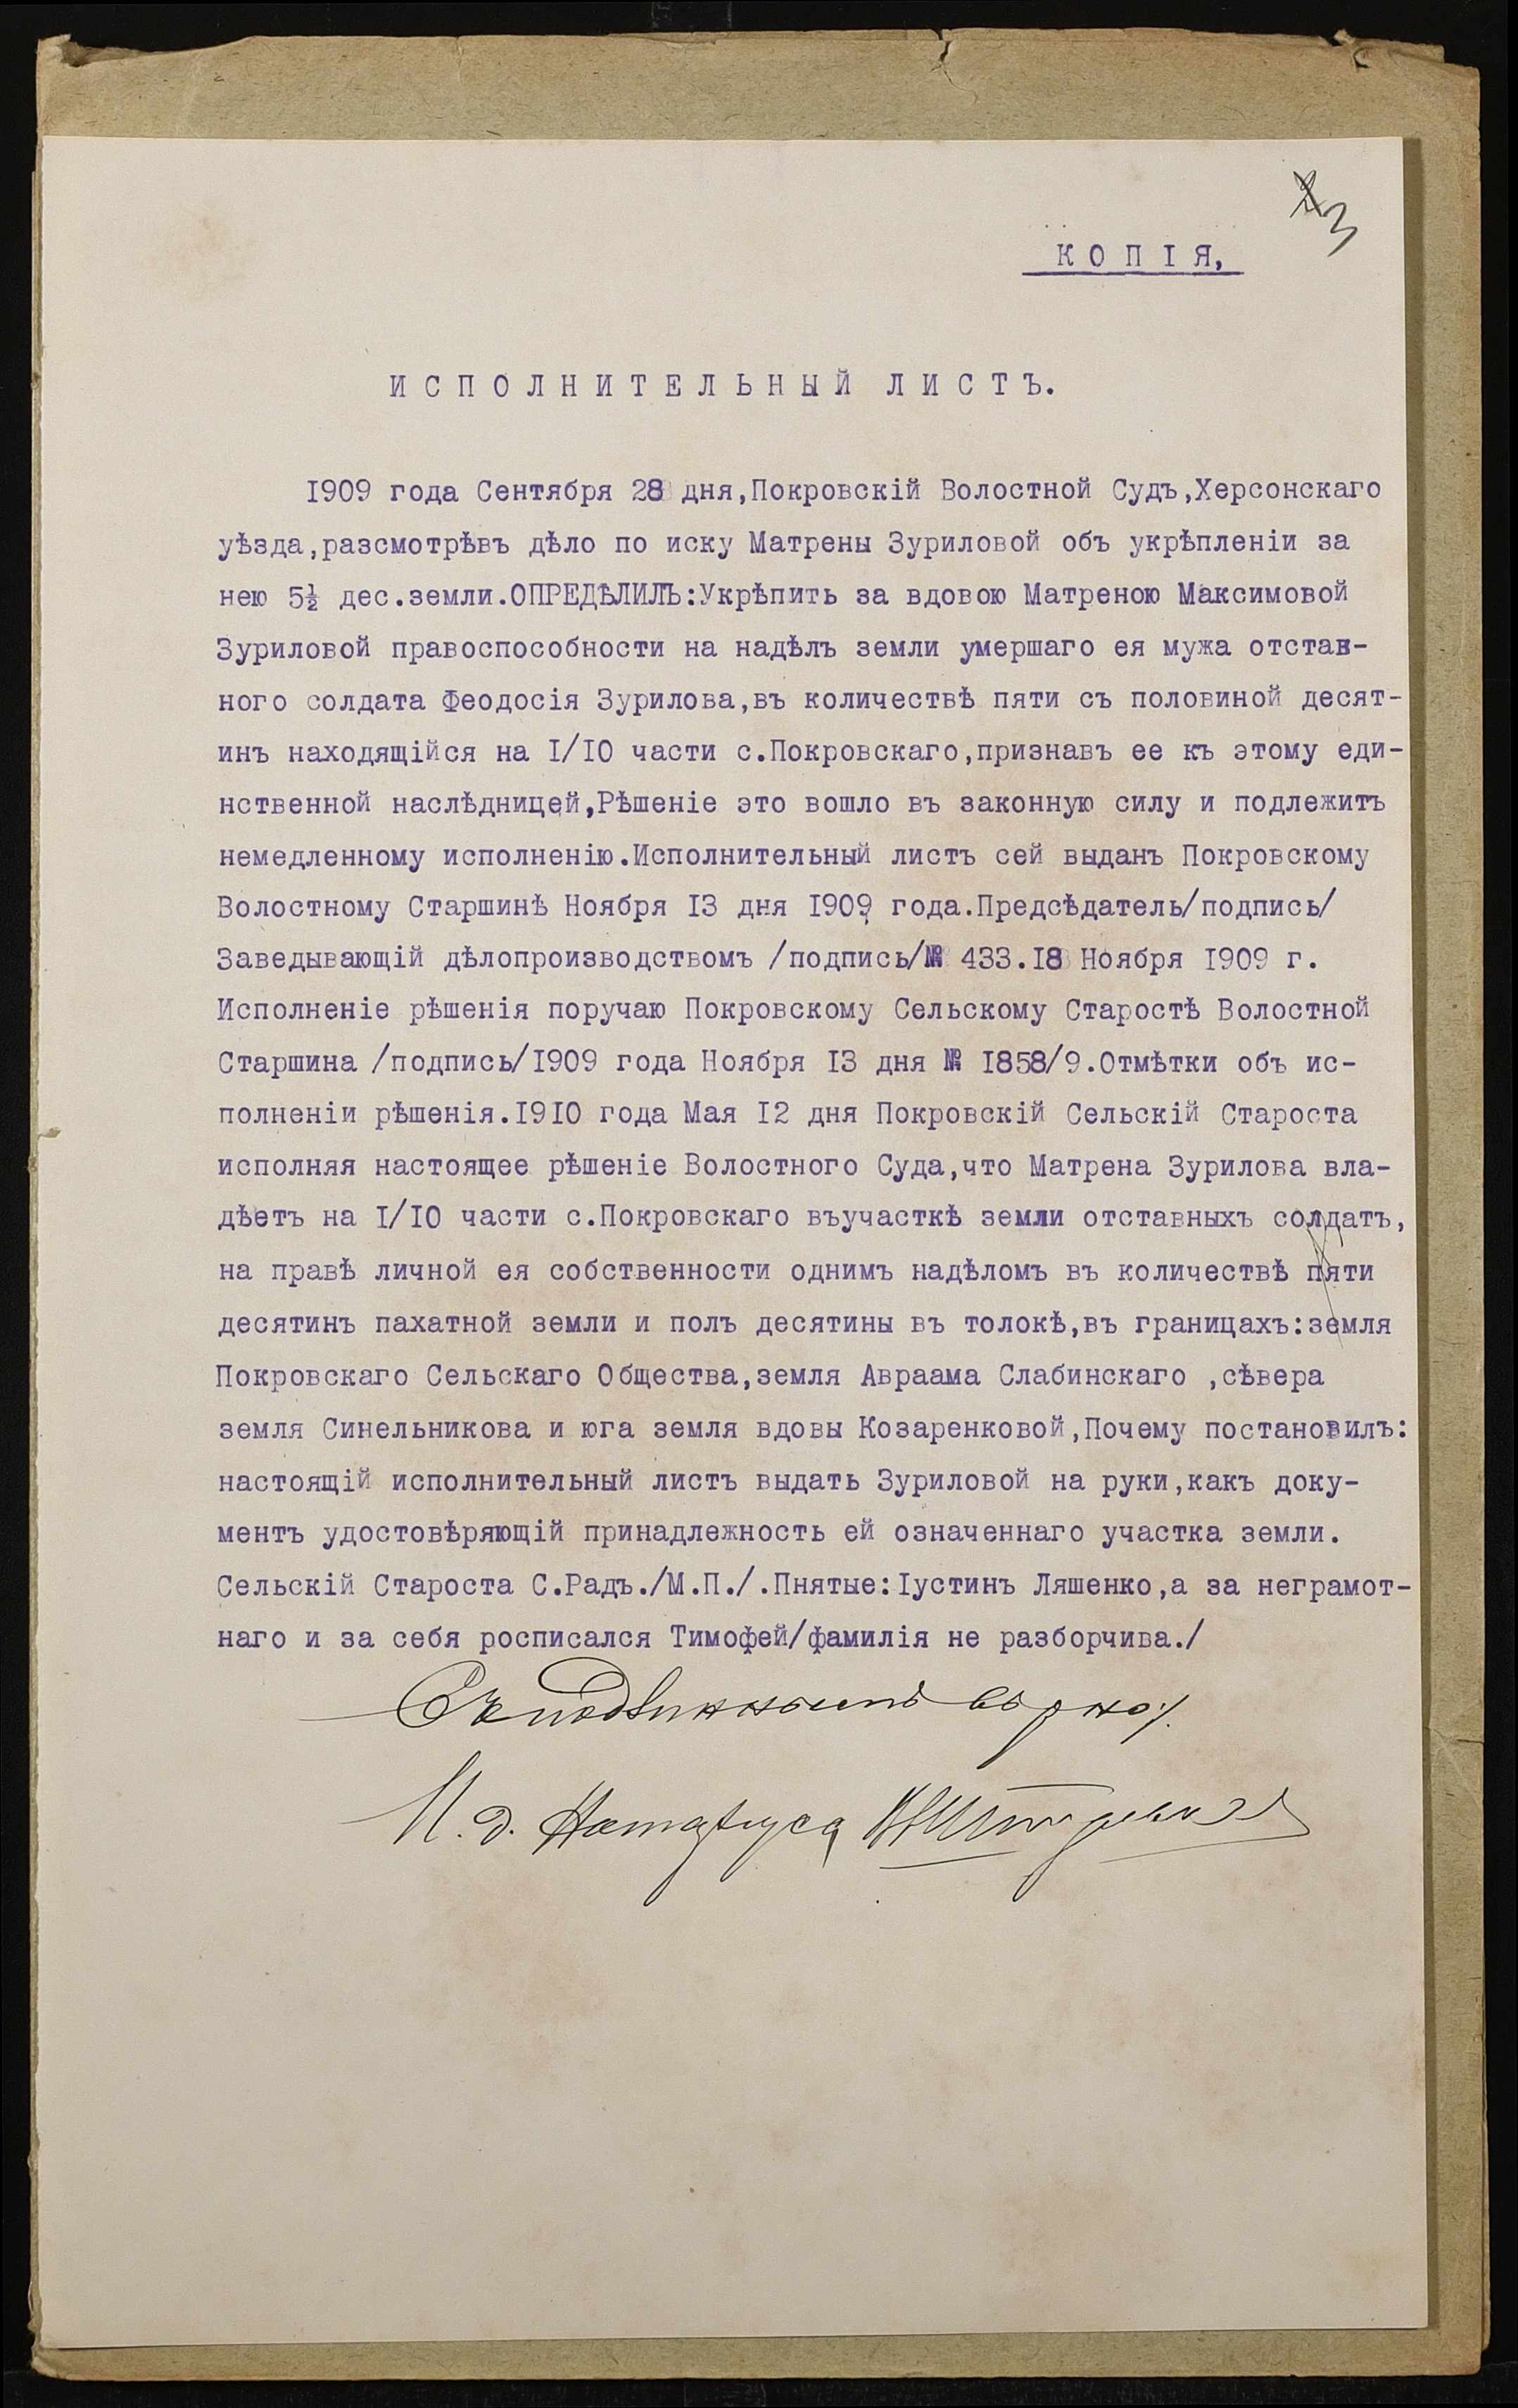 3
К О П I Я,
И С П О Л Н И Т Е Л Ь Н Ы Й Л И С Т Ъ.
I909 года Сентября 28 дня,Покровскій Волостной Судъ,Херсонскаго
уѣзда,разсмотрѣвъ дѣло по иску Матрены Зуриловой объ укрѣпленіи за
нею 5½ дес.земли.ОПРЕДѢЛИЛЪ:Укрѣпить за вдовою Матреною Максимовой
Зуриловой правоспособности на надѣлъ земли умершаго ея мужа отстав-
ного солдата Феодосія Зурилова,въ количествѣ пяти съ половиной десят-
инъ находящійся на I/IO части с.Покровскаго,признавъ ее къ этому еди-
нственной наслѣдницей,Рѣшеніе это вошло въ законную силу и подлежитъ
немедленному исполненію.Исполнительный листъ сей выданъ Покровскому
Волостному Старшинѣ Ноября I3 дня I909 года.Предсѣдатель/подпись/
Заведывающій дѣлопроизводствомъ /подпись/№ 433.I8 Ноября I909 г.
Исполненіе рѣшенія поручаю Покровскому Сельскому Старостѣ Волостной
Старшина /подпись/I909 года Ноября I3 дня № I858/9.Отмѣтки объ ис-
полненіи рѣшенія.I9IO года Мая I2 дня Покровскій Сельскій Староста
исполняя настоящее рѣшеніе Волостного Суда,что Матрена Зурилова вла-
дѣетъ на I/IO части с.Покровскаго въучасткѣ земли отставныхъ солдатъ,
на правѣ личной ея собственности однимъ надѣломъ въ количествѣ пяти
десятинъ пахатной земли и полъ десятины въ толокѣ,въ границахъ:земля
Покровскаго Сельскаго Общества,земля Авраама Слабинскаго ,сѣвера
земля Синельникова и юга земля вдовы Козаренковой,Почему постановилъ:
настоящій исполнительный листъ выдать Зуриловой на руки,какъ доку-
ментъ удостовѣряющій принадлежность ей означеннаго участка земли.
Сельскій Староста С.Радъ./М.П./.Пнятые:Iустинъ Ляшенко,а за неграмот-
наго и за себя росписался Тимофей/фамилія не разборчива./
Съ подлиннымъ вѣрно:
И. д. Нотаріуса